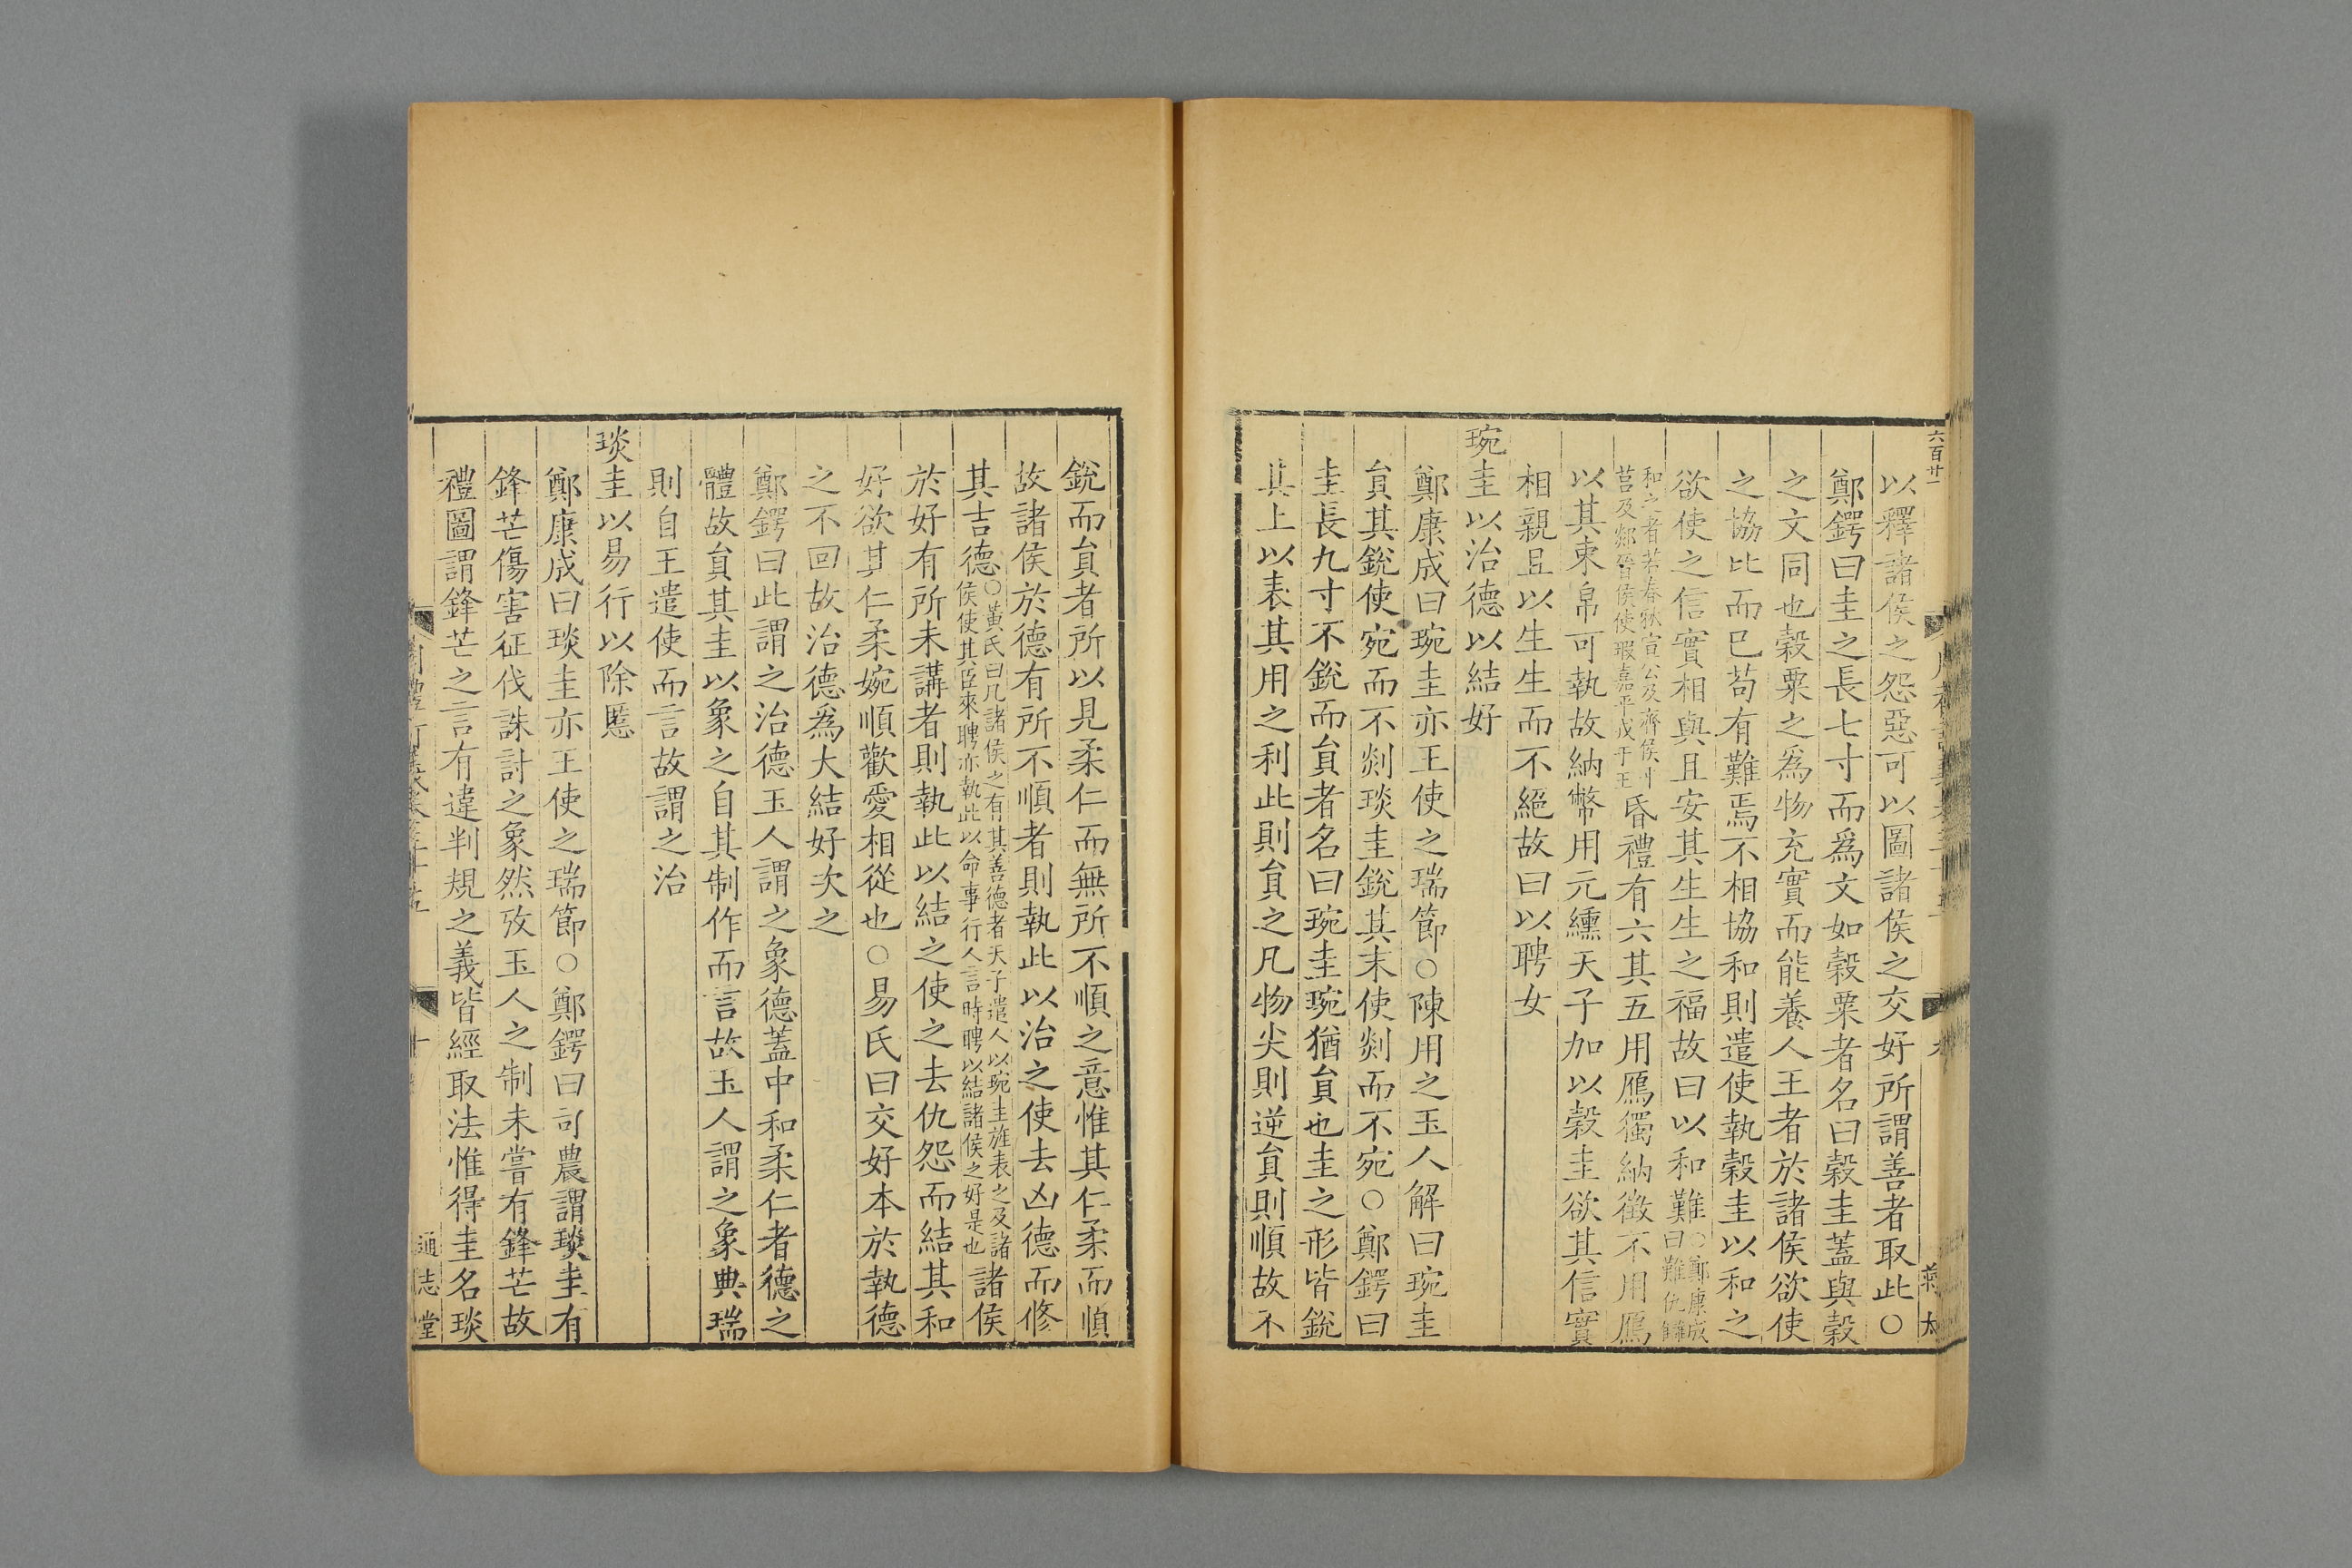 六百廿一
以釋諸侯之怨惡可以圖諸侯之交好所謂善者取此○
鄭鍔曰圭之長七寸而爲文如穀粟者名曰穀圭蓋與穀
之文同也穀粟之爲物充實而能養人王者於諸侯欲使
之協比而已苟有難焉不相協和則遣使執穀圭以和之
欲使之信實相與且安其生生之福故曰以和難○鄭康成曰難仇讎
和之者若春秋宣公及齊侯平莒及郯晉侯使瑕嘉平戎于王昏禮有六其五用鴈獨納徵不用鴈
以其束帛可執故納幣用元纁天子加以穀圭欲其信實
相親且以生生而不絕故曰以聘女
琬圭以治德以結好
鄭康成曰琬圭亦王使之瑞節○陳用之玉人解曰琬圭
貟其銳使宛而不剡琰圭銳其末使剡而不宛○鄭鍔曰
圭長九寸不銳而貟者名曰琬圭琬猶貟也圭之形皆銳
其上以表其用之利此則貟之凡物尖則逆貟則順故不
銳而貟者所以見柔仁而無所不順之意惟其仁柔而順
故諸侯於德有所不順者則執此以治之使去凶德而修
其吉德○黃氏曰凡諸侯之有其善德者天子遣人以琬圭旌表之及諸侯使其臣來聘亦執此以命事行人言時聘以結諸侯之好是也諸侯
於好有所未講者則執此以結之使之去仇怨而結其和
好欲其仁柔婉順歡愛相從也○易氏曰交好本於執德
之不回故治德爲大結好次之
鄭鍔曰此謂之治德玉人謂之象德蓋中和柔仁者德之
體故貟其圭以象之自其制作而言故玉人謂之象典瑞
則自王遣使而言故謂之治
琰圭以易行以除慝
鄭康成曰琰圭亦王使之瑞節○鄭鍔曰司農謂琰圭有
鋒芒傷害征伐誅討之象然攷玉人之制未嘗有鋒芒故
禮圖謂鋒芒之言有違判規之義皆經取法惟得圭名琰
通志堂